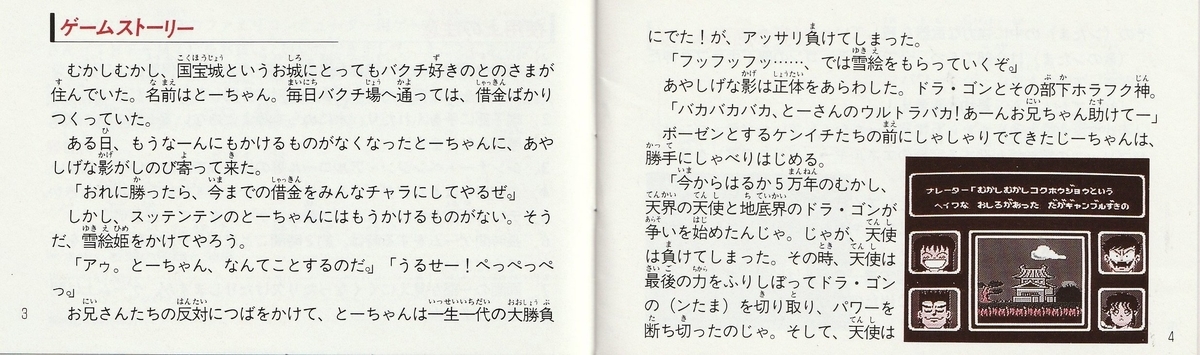 ゲームストーリー
むかしむかし、国宝城というお城にとってもバクチ好きのとのさまが
住んでいた。名前はとーちゃん。毎日バクチ場へ通っては、借金ばかり
つくっていた。
ある日、もうなーんにもかけるものがなくなったとーちゃんに、あや
しげな影がしのび寄って来た。
「おれに勝ったら、今までの借金をみんなチャラにしてやるぜ。」
しかし、スッテンテンのとーちゃんにはもうかけるものがない。そう
だ、雪絵姫をかけてやろう。
「アゥ。とーちゃん、なんてことするのだ。」「うるせー！ぺっぺっぺ
っ。」
お兄さんたちの反対につばをかけて、とーちゃんは一生一代の大勝負
3
にでた！が、アッサリ負けてしまった。
「フッフッフッ……、では雪絵をもらっていくぞ。」
あやしげな影は正体をあらわした。ドラ・ゴンとその部下ホラフク神。
「バカバカバカ、とーさんのウルトラバカ！あーんお兄ちゃん助けてー」
ボーゼンとするケンイチたちの前にしゃしゃりでてきたじーちゃんは、
勝手にしゃべりはじめる。
「今からはるか5万年のむかし、
天界の天使と地底界のドラ・ゴンが
争いを始めたんじゃ。じゃが、天使
は負けてしまった。その時、天使は
最後の力をふりしぼってドラ・ゴン
の（ンたま）を切り取り、パワーを
断ち切ったのじゃ。そして、天使は
ナレーター「むかしむかしコクホウジョウという
ヘイワな おしろがあった だがギャンブルずきの
4